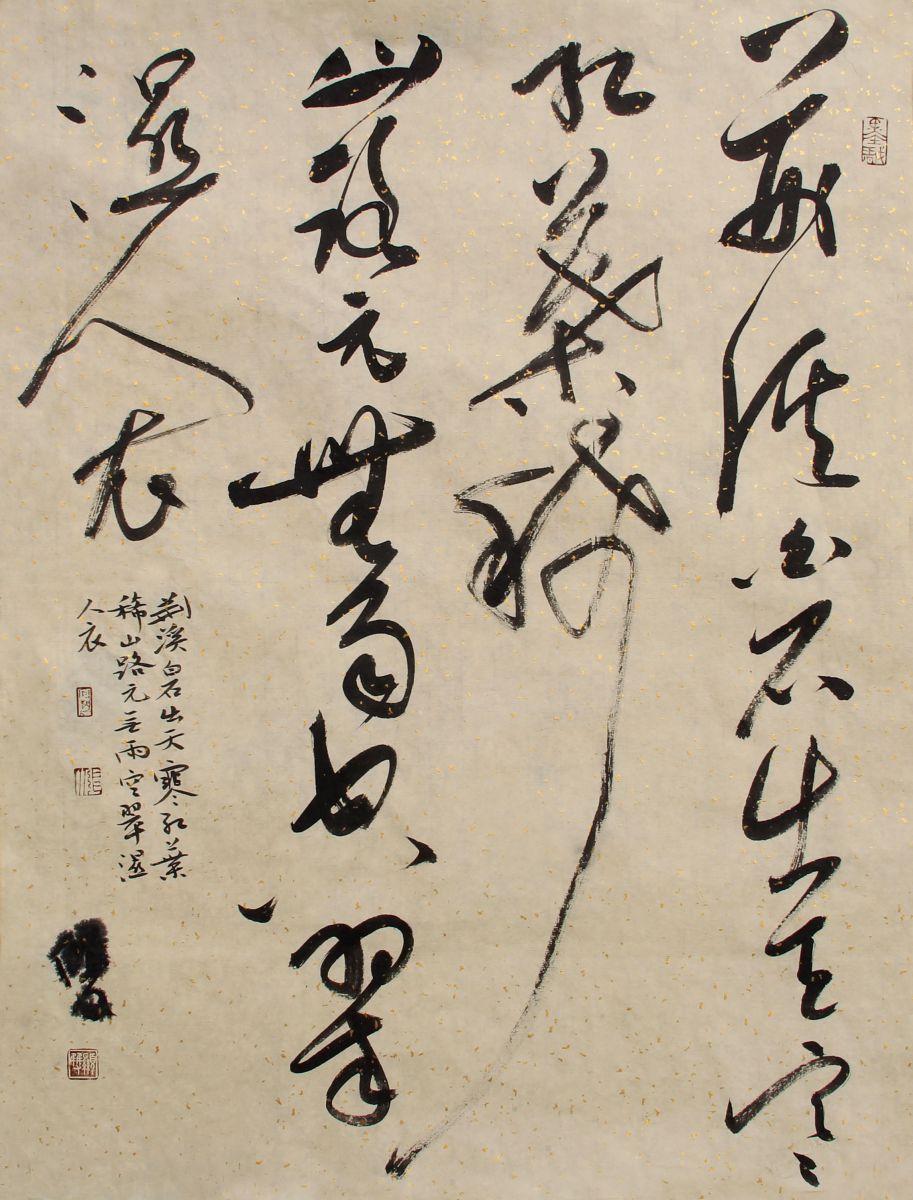 荆溪白石出天寒
红葉稀
山路元無雨空翠
濕人衣
荆溪白石出天寒红葉
稀山路元無雨空翠濕
人衣